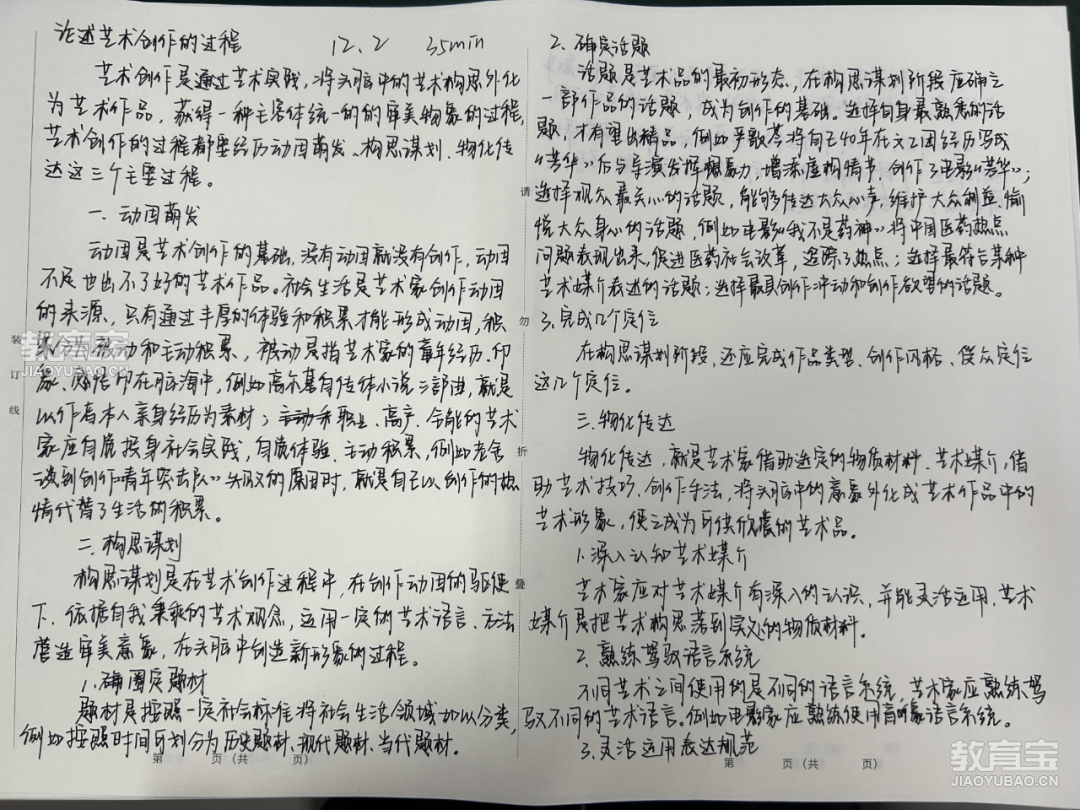 论述艺术创作的过程 12.2 35min
艺术创作是通过艺术实践，将头脑中的艺术构思外化
为艺术作品，获得一种主客体统一的的审美物象的过程，
艺术创作的过程都要经历动因萌发、构思谋划、物化传
达这三个主要过程。
一、动因萌发
动因是艺术创作的基础，没有动因就没有创作，动因
不足也出不了好的艺术作品。社会生活是艺术家创作动因
的来源，只有通过丰厚的体验和积累才能形成动因，积
累分被动和主动积累，被动是指艺术家的童年经历、印
象、感情印在脑海中，例如高尔基自传体小说三部曲，就是
以作者本人亲身经历为素材；职业、高产、全能的艺术
家应自觉投身社会实践，自觉体验、主动积累，例如老舍
谈到创作《青年突击队》失败的原因时，就是自己以创作的热
情代替了生活的积累。
二、构思谋划
构思谋划是在艺术创作过程中，在创作动因的驱使
下，依据自我秉乘的艺术观念，运用一定的艺术语言、方法
营造审美意象，在头脑中创造新形象的过程。
1.确圈定题材
题材是按照一定社会标准将社会生活领域加以分类，
例如按照时间可划分为历史题材、现代题材、当代题材。
2.确定话题
话题是艺术品的最初形态，在构思谋划阶段应确立
一部作品的话题，成为创作的基础。选择自身最熟悉的话
题，才有望出精品，例如严歌苓将自己40年在文工团经历写成
《芳华》后与导演发挥想象力，增添虚构情节，创作了电影《芳华》；
选择观众最关心的话题，能够传达大众心声，维护大众利益、愉
悦大众身心的话题，例如电影《我不是药神》将中国医药热点
问题表现出来，促进医药社会改革，追踪了热点；选择最符合某种
艺术媒介表述的话题；选择最具创作冲动和创作欲望的话题。
3.完成几个定位
在构思谋划阶段，还应完成作品类型、创作风格、受众定位
这几个定位。
三、物化传达
物化传达，就是艺术家借助选定的物质材料、艺术媒介，借
助艺术技巧、创作手法，将头脑中的意象外化成艺术作品中的
艺术形象，使之成为可供欣赏的艺术品。
1.深入认知艺术媒介
艺术家应对艺术媒介有深入的认识，并能灵活运用，艺术
媒介是把艺术构思落到实处的物质材料。
2.熟练驾驭语言系统
不同艺术之间使用的是不同的语言系统，艺术家应熟练驾
驭不同的艺术语言。例如电影家应熟练使用音响象语言系统。
3.灵活运用表达规范
装
订
线
请
勿
折
叠
第 页（共 页）
第 页（共 页）
教育宝
JIAOYUBAO.CN
教育宝
JIAOYUBAO.CN